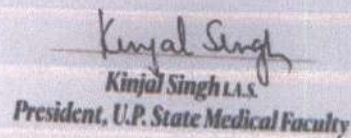 Kinjal Singh
Kinjal Singh I.A.S.
President, U.P. State Medical Faculty